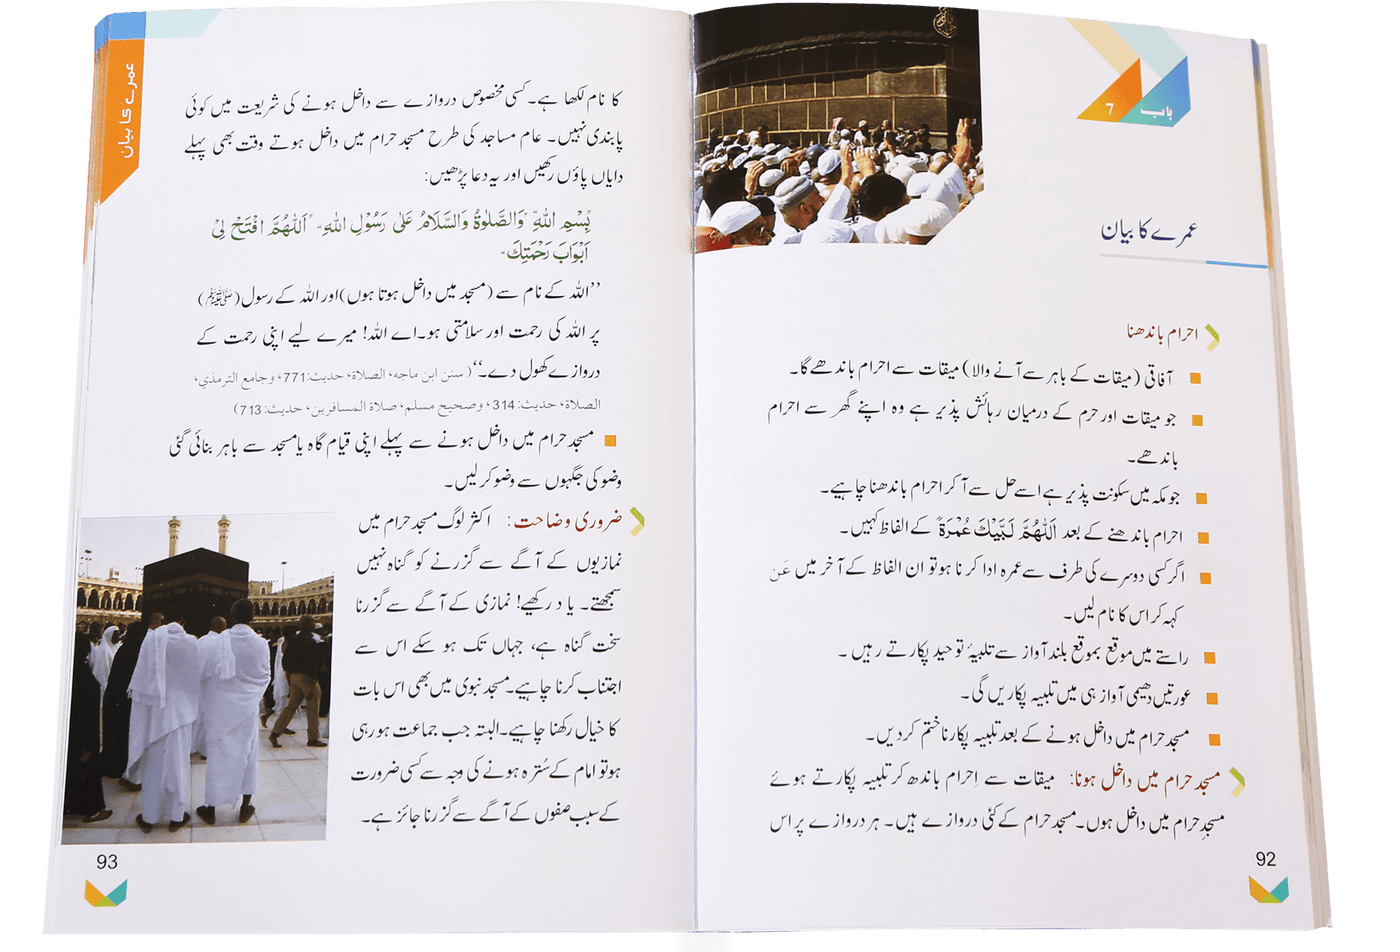 باب
7
عمرے کا بیان
احرام باندھنا
آفاقی (میقات کے باہر سے آنے والا) میقات سے احرام باندھے گا۔
جو میقات اور حرم کے درمیان رہائش پذیر ہے وہ اپنے گھر سے احرام
باندھے۔
جو مکہ میں سکونت پذیر ہے اسے حل سے آ کر احرام باندھنا چاہیے۔
احرام باندھنے کے بعد اَللّٰهُمَّ لَبَّيْكَ عُمْرَةً کے الفاظ کہیں۔
اگر کسی دوسرے کی طرف سے عمرہ ادا کرنا ہو تو ان الفاظ کے آخر میں عَنْ
کہہ کر اس کا نام لیں۔
راستے میں موقع بموقع بلند آواز سے تلبیۂ توحید پکارتے رہیں۔
عورتیں دھیمی آواز ہی میں تلبیہ پکاریں گی۔
مسجد حرام میں داخل ہونے کے بعد تلبیہ پکارنا ختم کر دیں۔
مسجد حرام میں داخل ہونا: میقات سے اِحرام باندھ کر تلبیہ پکارتے ہوئے
مسجدِ حرام میں داخل ہوں۔ مسجد حرام کے کئی دروازے ہیں۔ ہر دروازے پر اس
92
عمرے کا بیان
کا نام لکھا ہے۔ کسی مخصوص دروازے سے داخل ہونے کی شریعت میں کوئی
پابندی نہیں۔ عام مساجد کی طرح مسجد حرام میں داخل ہوتے وقت بھی پہلے
دایاں پاؤں رکھیں اور یہ دعا پڑھیں:
بِسْمِ اللّٰهِ وَالصَّلٰوةُ وَالسَّلَامُ عَلٰى رَسُوْلِ اللّٰهِ، اَللّٰهُمَّ افْتَحْ لِيْ
اَبْوَابَ رَحْمَتِكَ
’’اللہ کے نام سے (مسجد میں داخل ہوتا ہوں) اور اللہ کے رسول (ﷺ)
پر اللہ کی رحمت اور سلامتی ہو۔ اے اللہ! میرے لیے اپنی رحمت کے
دروازے کھول دے۔‘‘ (سنن ابن ماجه، الصلاة، حديث:771، وجامع الترمذي،
الصلاة، حديث:314، وصحيح مسلم، صلاة المسافرين، حديث:713)
مسجد حرام میں داخل ہونے سے پہلے اپنی قیام گاہ یا مسجد سے باہر بنائی گئی
وضو کی جگہوں سے وضو کر لیں۔
ضروری وضاحت: اکثر لوگ مسجد حرام میں
نمازیوں کے آگے سے گزرنے کو گناہ نہیں
سمجھتے۔ یاد رکھیے! نمازی کے آگے سے گزرنا
سخت گناہ ہے، جہاں تک ہو سکے اس سے
اجتناب کرنا چاہیے۔ مسجد نبوی میں بھی اس بات
کا خیال رکھنا چاہیے۔ البتہ جب جماعت ہو رہی
ہو تو امام کے سُترہ ہونے کی وجہ سے کسی ضرورت
کے سبب صفوں کے آگے سے گزرنا جائز ہے۔
93